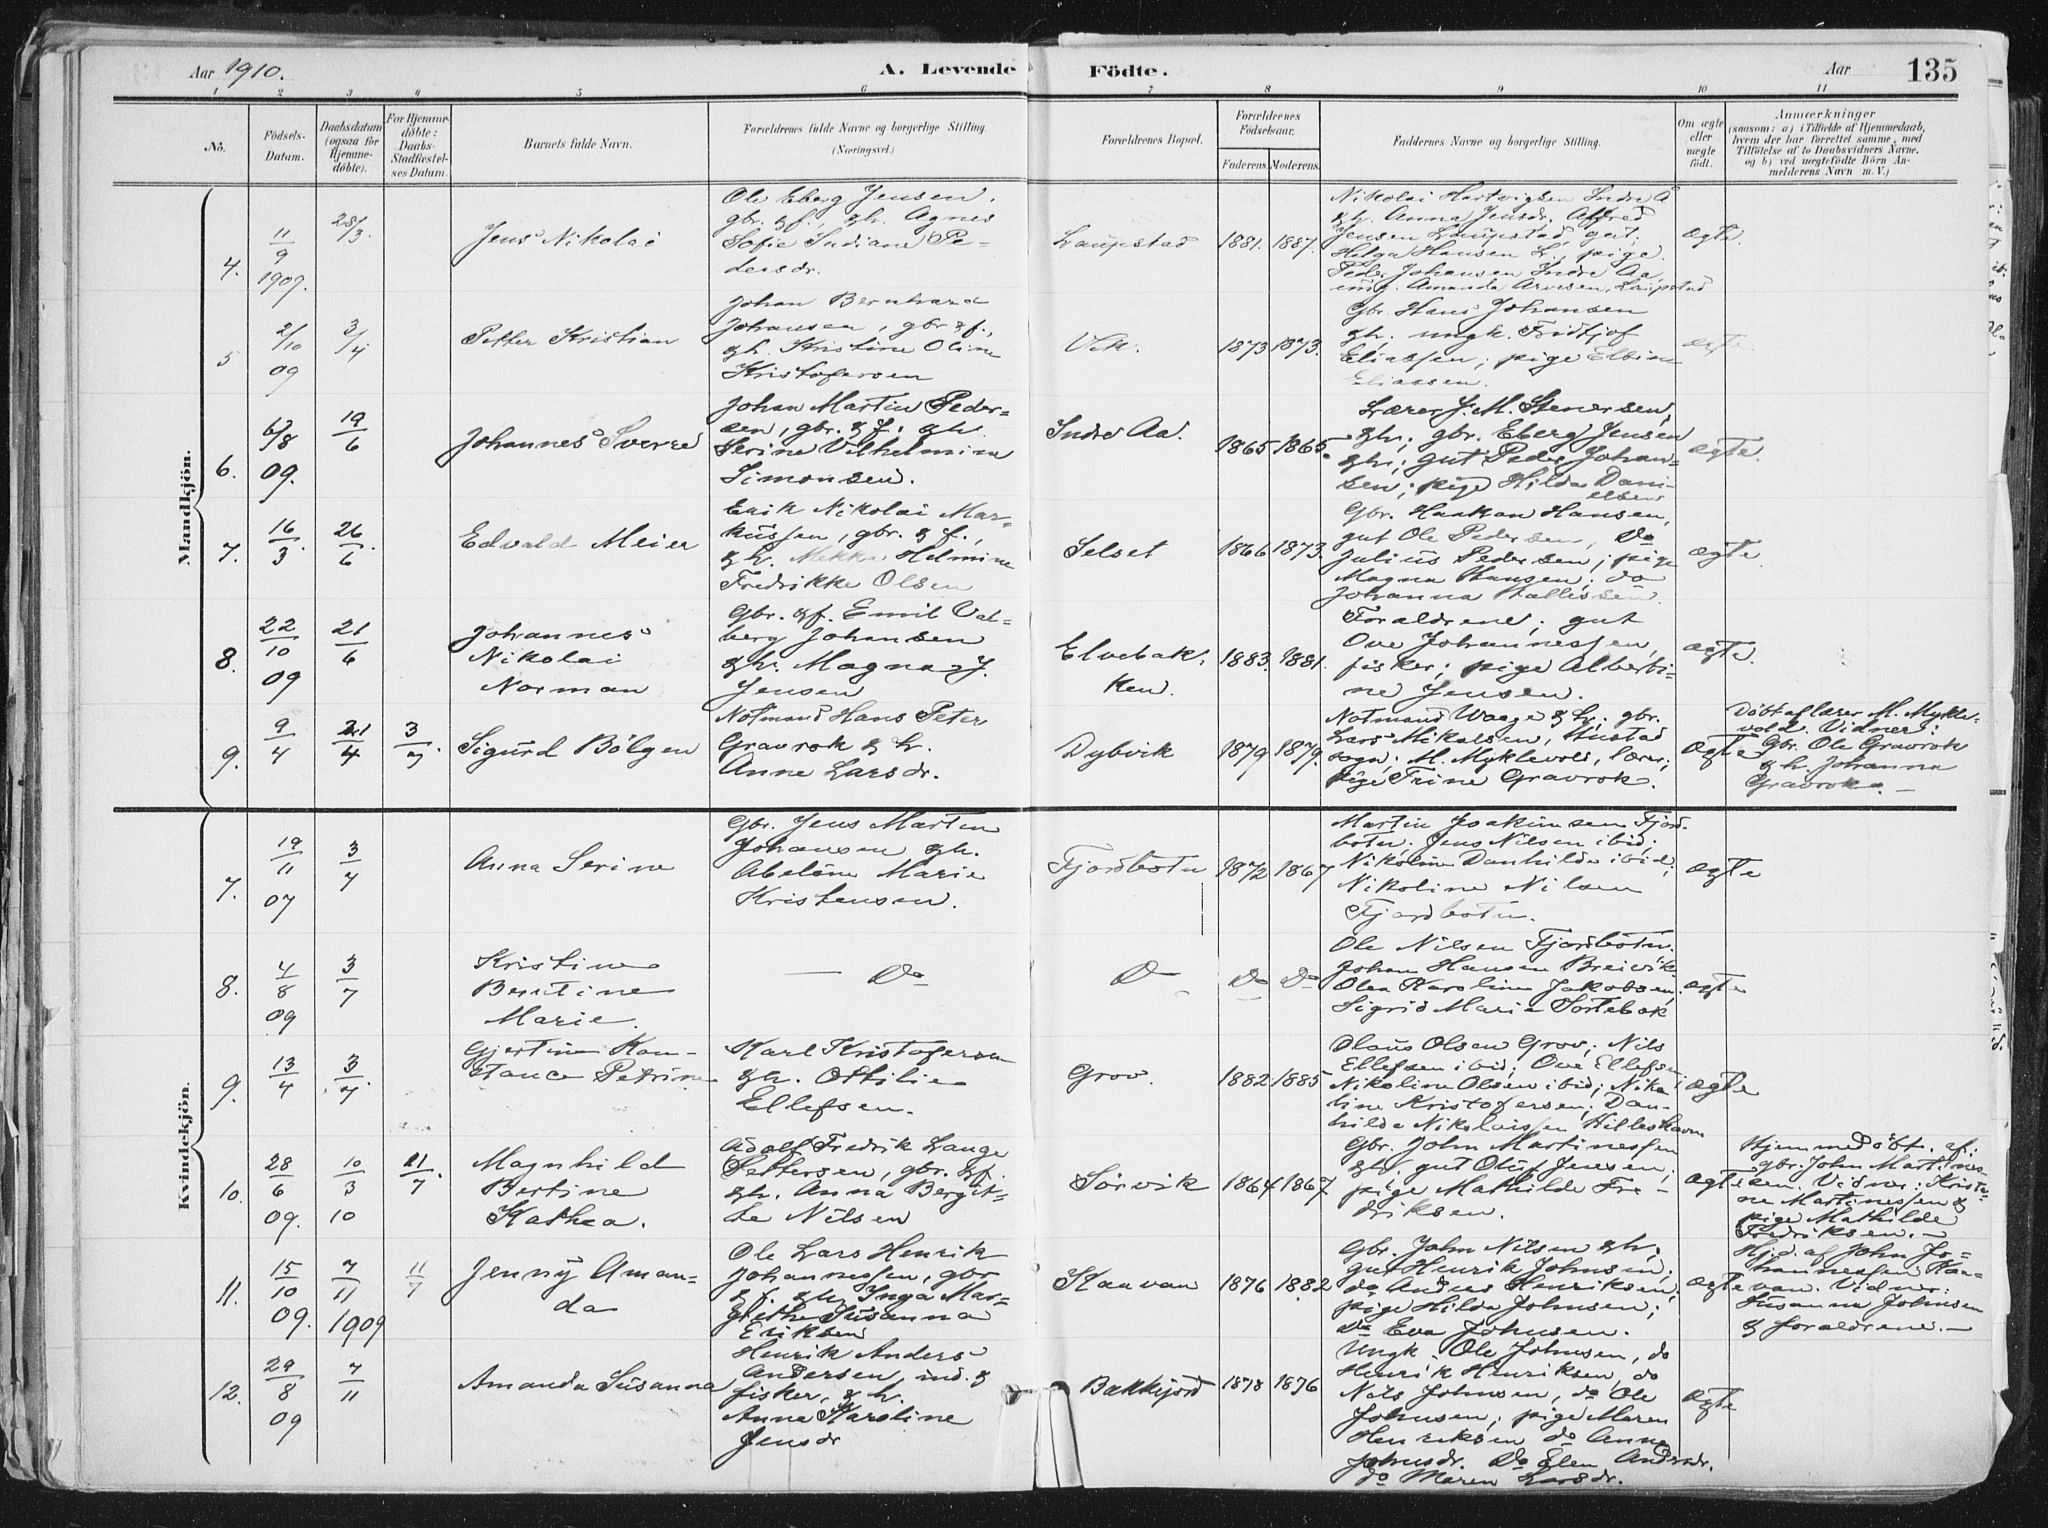 Aar 1910.
A. Levende Födte.
Aar
135
1 2 3 4 5 6 7 8 9 10 11
No.
Födsels-
Datum.
Daabsdatum
(ogsaa for
Hjemme-
döbte).
For Hjemme-
döbte:
Daabs-
Stadfæstel-
ses Datum.
Barnets fulde Navn.
Forældrenes fulde Navne og borgerlige Stilling.
(Næringsvei.)
Forældrenes Bopæl.
Forældrenes
Födselsaar.
Faderens. Moderens.
Faddernes Navne og borgerlige Stilling.
Om ægte
eller
uægte
födt.
Anmærkninger
(saasom: a) i Tilfælde af Hjemmedaab,
hvem der har forrettet samme, med
Tilföielse af to Daabsvidners Navne,
og b) ved uægtefödte Börn An-
melderens Navn m. V.)
Mandkjön.
4.
11/9
1909.
28/3.
Jens Nikolai
Ole Eberg Jensen,
gbr. & f., & h. Agnes
Sofie Indiane Pe-
dersdr.
Laupstad
1881. 1887.
Nikolai Hartvigsen Indre Å
& h. Anna Jensdr. Alfred
Jensen Laupstad, gut;
Helga Hansen L., pige.
Peder Johansen Indre Aa
ung. Amanda Arvesen, Laupstad
ægte.
5
2/10
09
3/4
Petter Kristian
Johan Bernhard
Johansen, gbr & f.,
& h. Kristine Oline
Kristofersen
Vik.
1873 1873.
Gbr. Hans Johansen
& h.; ungk. Fridtjof
Eliassen; pige Elbine
Eliassen.
ægte.
6.
6/8
09.
19/6
Johannes Sverre
Johan Martin Peder-
sen, gbr. & f. & h.
Serine Vilhelmine
Simonsen.
Indre Aa.
1865 1865.
Lærer J. M. Stenersen,
& h.; gbr. Eberg Jensen
& h.; gut Peder Johan-
sen; pige Hilda Dani-
elsen
ægte.
7.
16/3.
26/6.
Edvald Meier
Erik Nikolai Mar-
kussen, gbr. & f.,
& h. Mekka Helmine
Fredrikke Olsen
Selset
1866 1873.
Gbr. Haakon Hansen,
gut Ole Pedersen, Do
Julius Pedersen; pige
Magna Hansen; do
Johanna Hallesen.
ægte.
8.
22/10
09
21/6
Johannes
Nikolai
Norman
Gbr. & f. Emil Val-
berg Johansen
& h. Magna J.
Jensen
Elvebak-
ken.
1883. 1881.
Forældrene; gut
Ove Johannessen,
fisker; pige Alberti-
ne Jensen.
ægte.
9.
9/4
21/4
3/7
Sigurd Bölgen
Notmand Hans Peter
Gravrok & h.
Anne Larsdr.
Dybvik
1879 1879.
Notmand Waage & h. gbr.
Lars Mikalsen, Hustad
sogn; M. Myklevold, lærer;
pige Trine Gravrok.
ægte
Döbt af lærer M. Mykle-
vold. Vidner:
Gbr. Ole Gravrok
& h. Johanna
Gravrok. —
Kvindekjön.
7.
19/11
07
3/7
Anna Serine
Gbr. Jens Martin
Johansen & h.
Abeline Marie
Kristensen.
Fjordbotn
1872 1867
Martin Joakimsen Fjord-
botn; Jens Nilsen ibid;
Nikoline Danhilde ibid;
Nikoline Nilsen
Fjordbotn.
ægte
8.
4/8
09
3/7
Kristine
Berntine
Marie.
— Do
Do
Do Do
Ole Nilsen Fjordbotn.
Johan Hansen Breivik.
Olea Karoline Jakobsen,
Sigrid Marie Sortebak
ægte
9.
13/4
3/7.
Gjertine Kon-
stance Petrine
Karl Kristofersen
& h. Ottilie
Ellefsen.
Grov.
1882 1885
Olaus Olsen Grov; Nils
Ellefsen ibid; Ove Ellefsen;
Nikoline Olsen ibid; Niko-
line Kristofersen; Dan-
hilde Nikolaisen Hilleshavn
ægte
10.
28/6
09.
10/3
10
21/7
Magnhild
Bertine
Kathea.
Adolf Fredrik Lange
Pettersen, gbr. & f.
& h. Anna Bergit-
te Nilsen
Sörvik
1864 1867
Gbr. John Martinessen
& h; gut Oluf Jensen;
pige Mathilde Fre-
driksen.
ægte
Hjemmedöbt af:
gbr. John Martines-
sen. Vidner: Kristi-
ne Martinessen &
pige Mathilde
Fredriksen. —
11.
15/10
09.
7/11
1909
11/7
Jenny Aman-
da
Ole Lars Henrik
Johannessen, gbr
& f. & h. Inga Mar-
grethe Susanna
Eriksen
Kaavan
1876 1882
Gbr. John Nilsen & h.
gut Henrik Johnsen;
do Andreas Henriksen,
pige Hilda Johnsen;
Do Eva Johnsen.
ægte
Hjd. af John Jo-
hannessen Kaa-
van. Vidner:
Susanna Johnsen
& forældrene. —
12.
29/8
09
7/11
Amanda Susanna
Henrik Anders
Andersen, ind. &
fisker, & h.
Anne Karoline
Jensdr
Bakkejord
1878 1876
Ungk. Ole Johnsen, do
Henrik Henriksen, do
Nils Johnsen, do Ole
Johnsen; pige Maren
Henriksen do Anne
Johnsdr. Do Elen Andrsdr.
do Maren Larsdr.
ægte